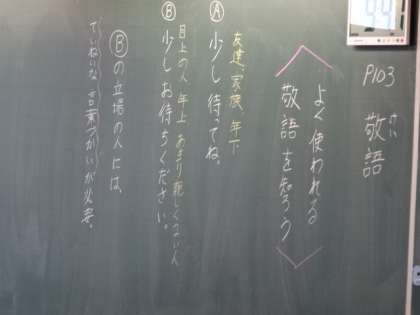 P103 敬語
けい
よく使われる
敬語を知ろう
友達、家族、年下
Ⓐ 少し待ってね。
目上の人 年上 あまり親しくない人
Ⓑ 少しお待ちください。
Ⓑの立場の人には、
ていねいな言葉づかいが必要。